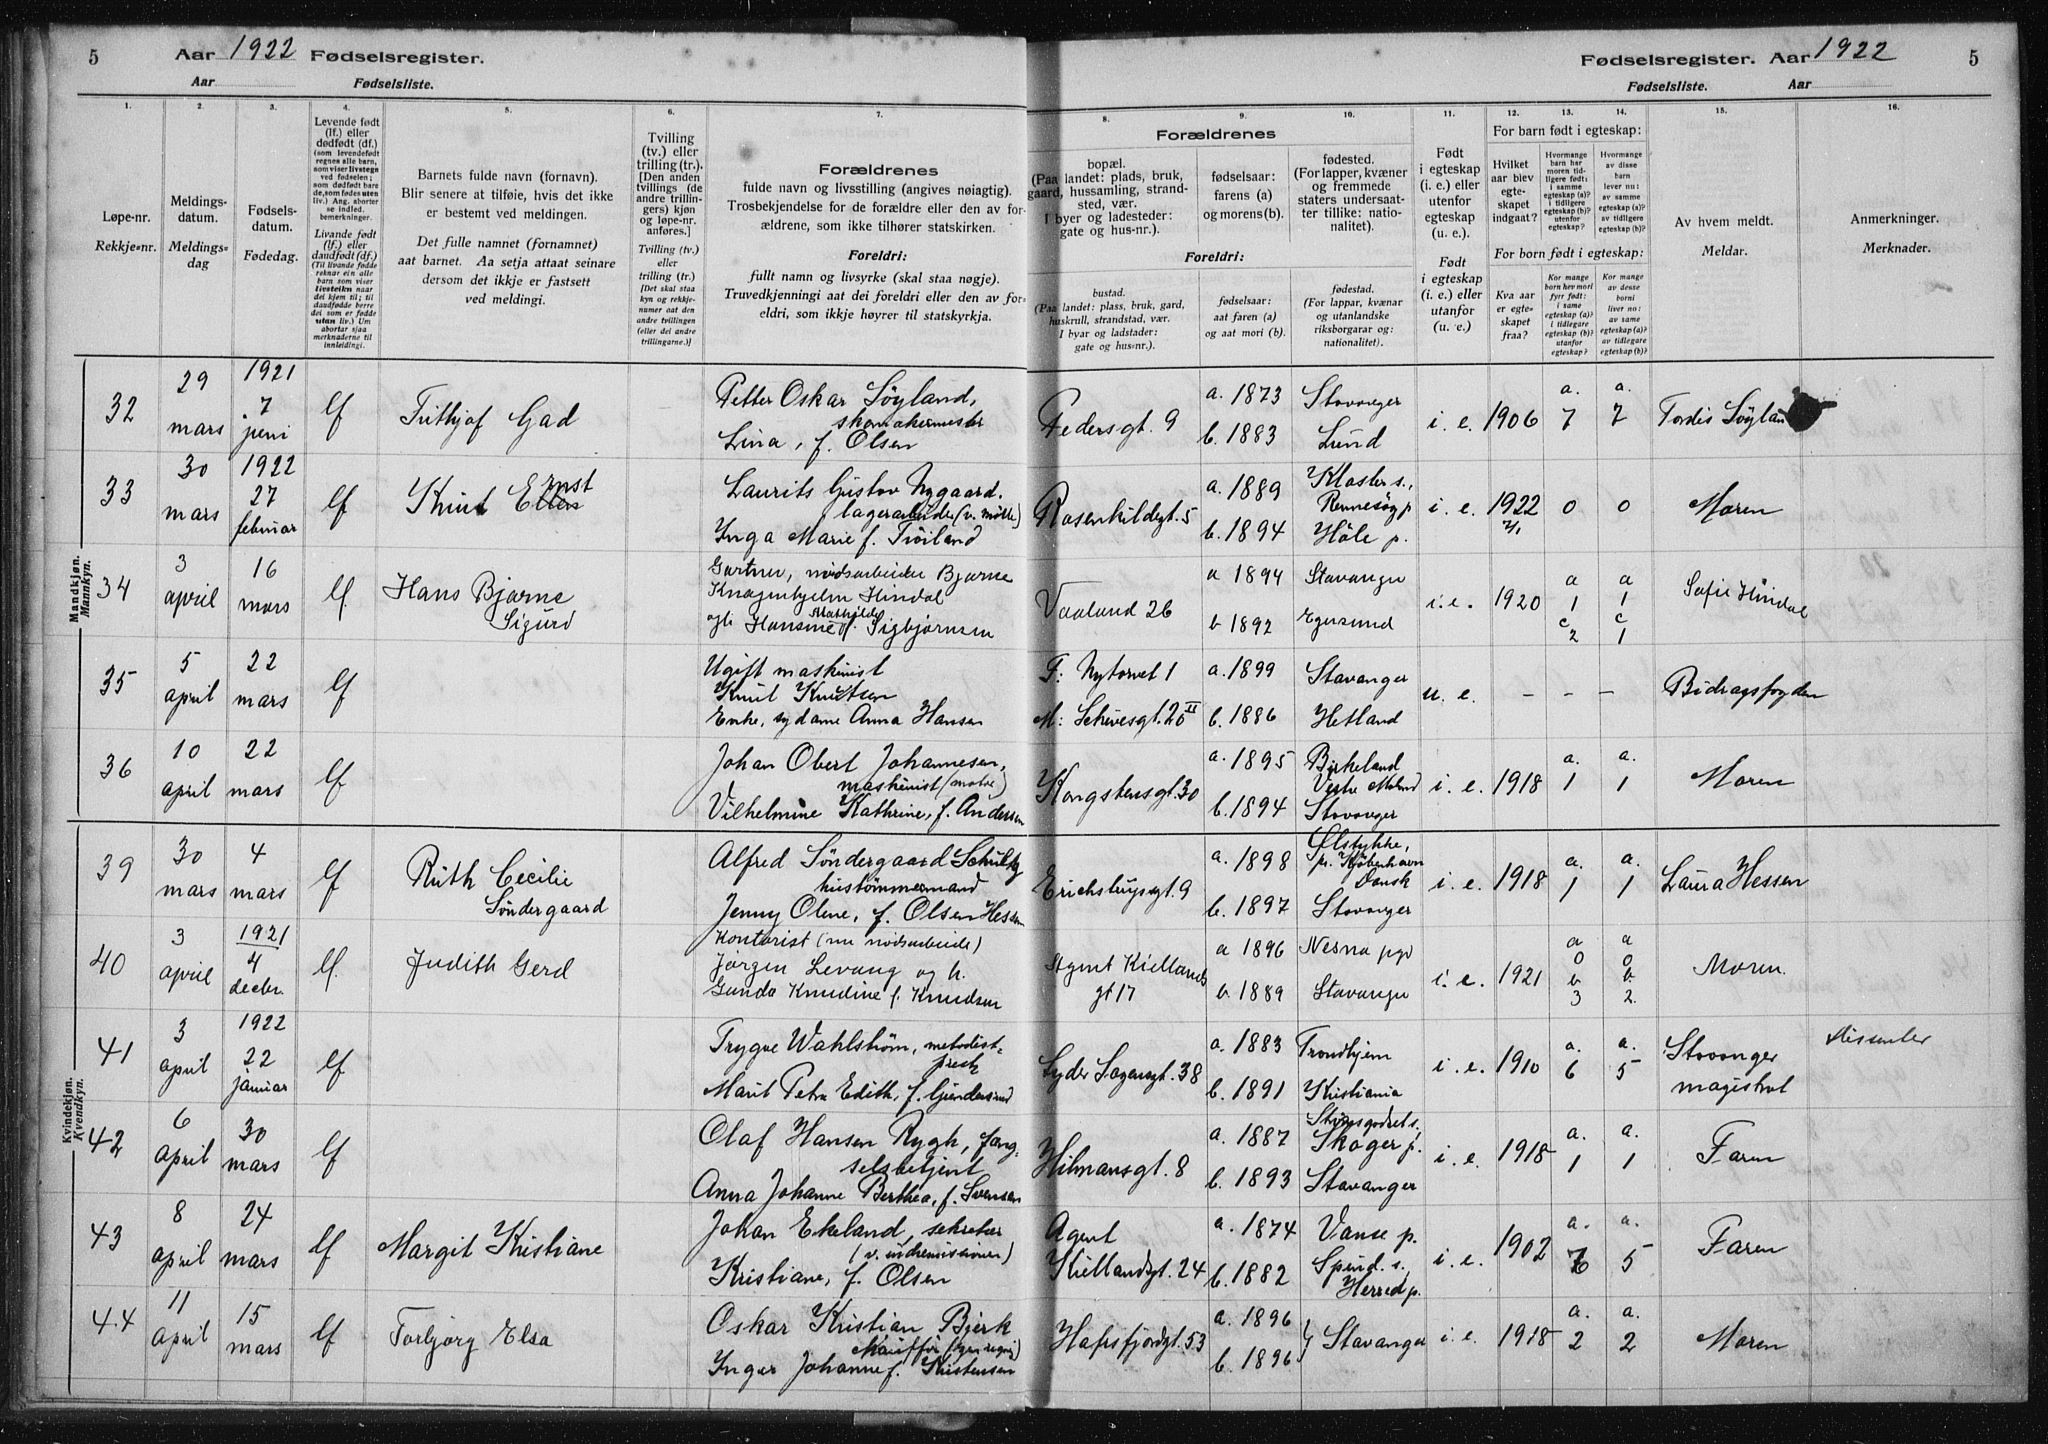 5 Aar 1922 Fødselsregister.
Aar Fødselsliste.
Fødselsregister. Aar 1922 5
Fødselsliste. Aar
1. 2. 3. 4. 5. 6. 7. 8. 9. 10. 11. 12. 13. 14. 15. 16.
Løpe-nr.
Rekkje-nr.
Meldings-
datum.
Meldings-
dag
Fødsels-
datum.
Fødedag.
Levende født
(lf.) eller
dødfødt (df.)
(som levendefødt
regnes alle barn,
som viser livstegn
ved fødselen;
som dødfødt bare
de, som fødes uten
liv.) Ang. aborter
se indled.
bemerkninger.
Livande født
(lf.) eller
daudfødt (df.)
(Til livande fødde
reknar ein alle
barn som viser
livsteikn naar
dei kjem til; til
daudfødde berre
dei som er fødde
utan liv.) Um
abortar sjaa
merknaderne til
innleidingi.
Barnets fulde navn (fornavn).
Blir senere at tilføie, hvis det ikke
er bestemt ved meldingen.
Det fulle namnet (fornamnet)
aat barnet. Aa setja attaat seinare
dersom det ikkje er fastsett
ved meldingi.
Tvilling
(tv.) eller
trilling (tr.).
[Den anden
tvillings (de
andre trillin-
gers) kjøn
og løpe-nr.
anføres.]
Tvilling (tv.)
eller
trilling (tr.)
[Det skal staa
kyn og rekkje-
numer aat den
andre tvillingen
(eller dei andre
trillingarne.)]
Forældrenes
fulde navn og livsstilling (angives nøiagtig).
Trosbekjendelse for de forældre eller den av for-
ældrene, som ikke tilhører statskirken.
Foreldri:
fullt namn og livsyrke (skal staa nøgje).
Truvedkjenningi aat dei foreldri eller den av for-
eldri, som ikkje høyrer til statskyrkja.
Forældrenes
bopæl.
(Paa landet: plads, bruk,
gaard, hussamling, strand-
sted, vær.
I byer og ladesteder:
gate og hus-nr.).
fødselsaar:
farens (a)
og morens(b).
fødested.
(For lapper, kvæner
og fremmede
staters undersaat-
ter tillike: natio-
nalitet).
Foreldri:
bustad.
(Paa landet: plass, bruk, gard,
huskrull, strandstad, vær.
I byar og ladstader:
gate og hus-nr.).
fødselsaar:
aat faren (a)
og aat mori (b).
fødestad.
(For lappar, kvænar
og utanlandske
riksborgarar og:
nationalitet).
Født
i egteskap
(i. e.) eller
utenfor
egteskap
(u. e.).
Født
i egteskap
(i. e.) eller
utanfor
(u. e.)
For barn født i egteskap:
Hvilket
aar blev
egte-
skapet
indgaat?
Hvormange
barn har
moren tid-
ligere født:
i samme
egteskap (a)?
i tidligere
egteskap (b)?
utenfor
egteskap?
Hvormange
av disse
barn
lever nu:
av samme
egteskap (a)?
av tidligere
egteskap (b)?
For born født i egteskap:
Kva aar
er egte-
skapet
fraa?
Kor mange
born hev mori
fyrr født:
i same
egteskap (a)?
i tidlegare
egteskap (b)?
utanfor
egteskap?
Kor mange
av desse
borni
liver no:
av same
egteskap (a)?
av tidlegare
egteskap (b)?
Av hvem meldt.
Meldar.
Anmerkninger.
Merknader.
Mandkjøn.
Mannkyn.
32 29 mars 1921 7 juni lf Frithjof Gad
Petter Oskar Søyland,
skomakermester
Lina, f. Olsen
Pedersgt. 9 a. 1873 Stavanger b. 1883 Lund i. e. 1906 a. 7 a. 7 Tordis Søylan
33 30 mars 1922 27 februar lf Knut Ernst
Laurits Gustav Nygaard.
lagerarbeider (v. mølle)
Inga Marie f. Tioiland
Rosenkildegt. 5 a. 1889 Kloster s., Rennesøy p b. 1894 Höle p. i. e. 1922 0 0 Moren
34 3 april 16 mars lf. Hans Bjarne
Sigurd
Gartner, nødsarbeider Bjarne
Knagenhjelm Hindal
og h. Hansine Mathilde f. Sigbjørnsen
Vaaland 26 a 1894 Stavanger b 1892 Egersund i. e. 1920 a 1 c 2 a 1 c 1 Sofie Hindal
35 5 april 22 mars lf
Ugift maskinist
Knut Knutsen
Enke, sydame Anna Hansen
F: Nytorvet 1 a. 1899 Stavanger
M: Schivesgt. 20 II b. 1886 Hetland u. e. - - - Bidragsfogden
36 10 april 22 mars lf
Johan Obert Johannesen,
maskinist (motor)
Vilhelmine Kathrine, f. Andersen
Kongstensgt. 30 a. 1895 Birkeland Vestre Moland b. 1894 Stavanger i. e. 1918 a. 1 a. 1 Moren
Kvindekjøn.
Kvendkyn.
39 30 mars 4 mars lf Ruth Cecilie
Søndergaard
Alfred Søndergaard Schultz
hustømmermand
Jenny Olene, f. Olsen Hessen
Erichstrupsgt. 9 a. 1898 Ølstykke, pr. København Dansk b. 1897 Stavanger i. e. 1918 a. 1 a. 1 Laura Hessen
40 3 april 1921 4 decbr. lf. Judith Gerd
Kontorist (nu nødsarbeide)
Jørgen Levang og h.
Gunda Knudine f. Knudsen
Agent Kiellands
gt 17 a 1896 Nesna pgd b 1889 Stavanger i. e. 1921 a 0 b 3 a 0 b. 2. Moren.
41 3 april 1922 22 januar lf
Trygve Wahlstrøm, metodist-
præst
Marit Petra Edith, f. Gundersrud
Lyder Sagensgt. 38 a. 1883 Trondhjem b. 1891 Kristiania i. e. 1910 a. 6 a. 5 Stavanger
magistrat dissenter
42 6 april 30 mars lf
Olaf Hansen Rygh, fæng-
selsbetjent
Anna Johanne Berthea, f. Svensen
Hilmansgt. 8 a. 1887 Strømsgodset s. Skoger p. b. 1893 Stavanger i. e. 1918 a. 1 a. 1 Faren
43 8 april 24 mars lf Margit Kristiane
Johan Ekeland, sekretær
(v. indremissionen)
Kristiane, f. Olsen
Agent
Kiellandsgt. 24 a. 1874 Vanse p. b. 1882 Spind. s. Herred p. i. e. 1902 a. 6 a. 5 Faren
44 11 april 15 mars lf Torbjørg Elsa
Oskar Kristian Bjerk
chauffør (egen regn.)
Inger Johanne f. Kristensen
Hafrsfjordgt. 53 a. 1896 b. 1896 Stavanger i. e. 1918 a. 2 a. 2 Moren